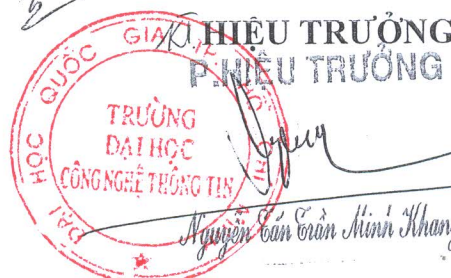 KT. HIỆU TRƯỞNG
P.HIỆU TRƯỞNG
ĐẠI HỌC QUỐC GIA
TRƯỜNG
ĐẠI HỌC
CÔNG NGHỆ THÔNG TIN
Nguyễn Tấn Trần Minh Khang